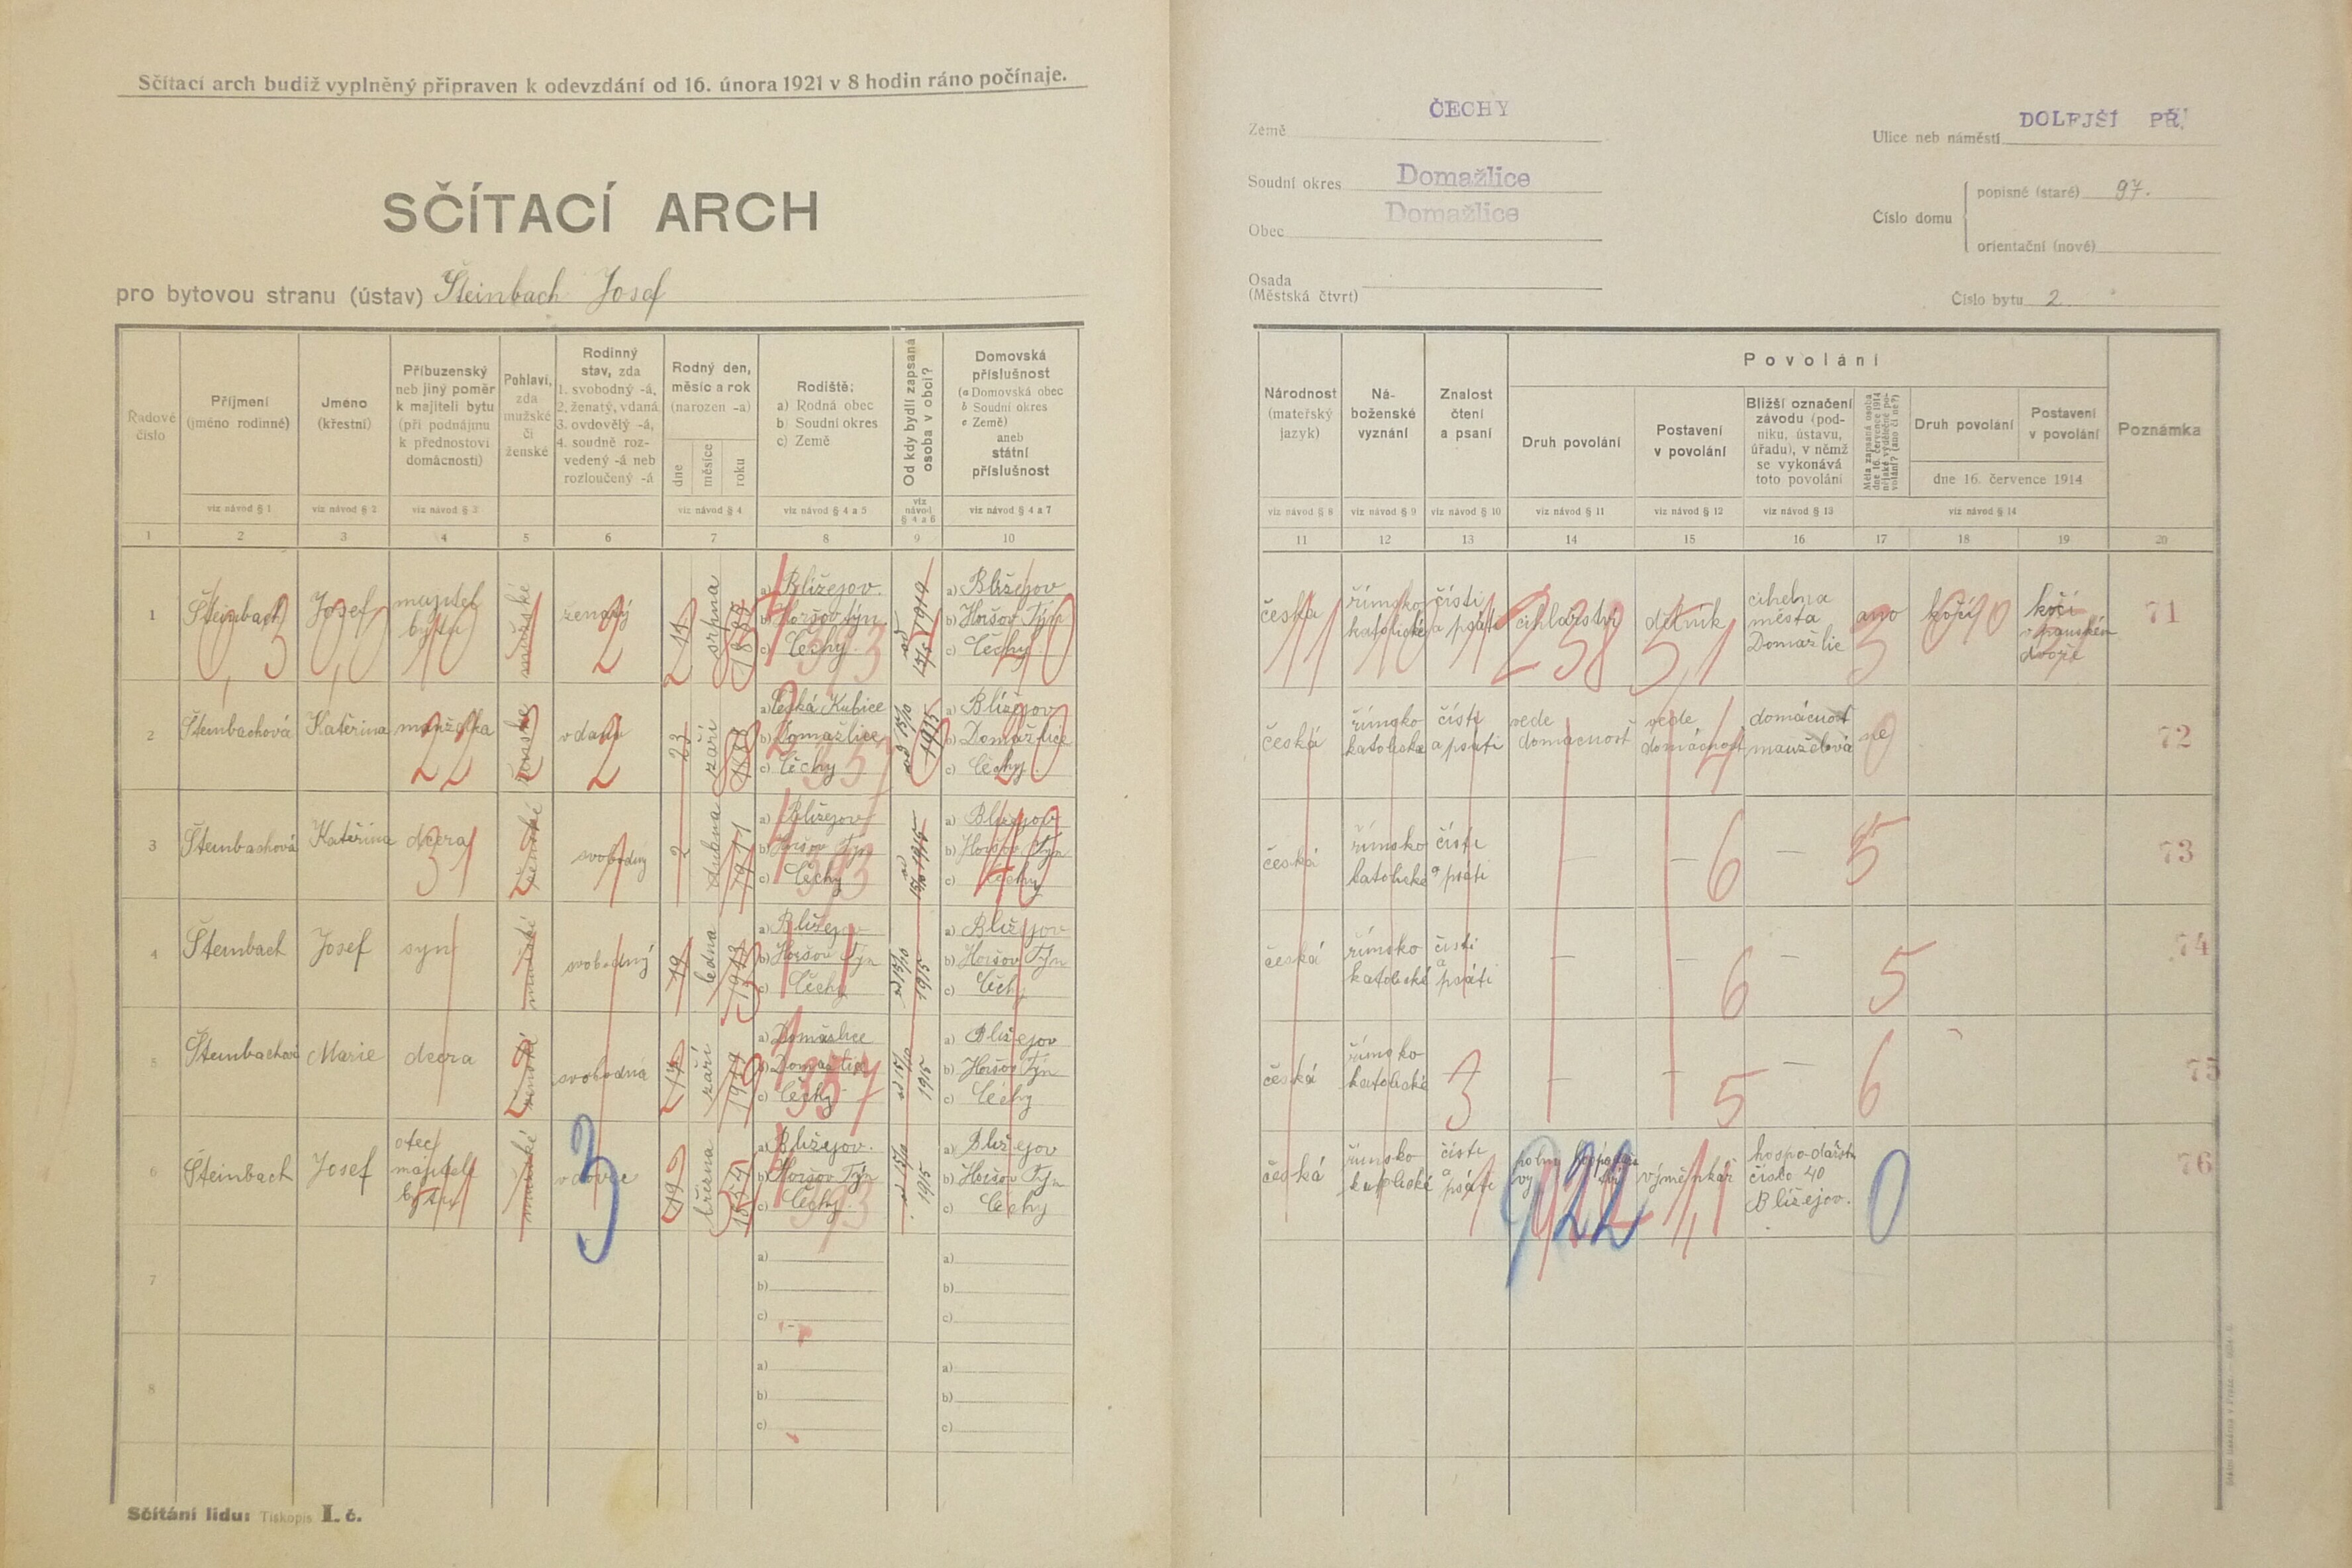 Sčítací arch budiž vyplněný připraven k odevzdání od 16. února 1921 v 8 hodin ráno počínaje.
SČÍTACÍ ARCH
pro bytovou stranu (ústav) Šteinbach Josef
Země ČECHY
Soudní okres Domažlice
Obec Domažlice
Osada
(Městská čtvrt)
Ulice neb náměstí DOLEJŠÍ PŘ.
Číslo domu
popisné (staré) 97.
orientační (nové)
Číslo bytu 2.
Řadové číslo
Příjmení (jméno rodinné)
Jméno (křestní)
Příbuzenský neb jiný poměr k majiteli bytu (při podnájmu k přednostovi domácnosti)
Pohlaví, zda mužské či ženské
Rodinný stav, zda
1. svobodný -á,
2. ženatý, vdaná,
3. ovdovělý -á,
4. soudně rozvedený -á neb rozloučený -á
Rodný den, měsíc a rok (narozen -a)
dne měsíce roku
Rodiště:
a) Rodná obec
b) Soudní okres
c) Země
Od kdy bydlí zapsaná osoba v obci?
Domovská příslušnost
(a Domovská obec
b Soudní okres
c Země)
aneb státní příslušnost
viz návod § 1
viz návod § 2
viz návod § 3
viz návod § 4
viz návod § 4 a 5
viz návod § 4 a 6
viz návod § 4 a 7
1 2 3 4 5 6 7 8 9 10
Národnost (mateřský jazyk)
Náboženské vyznání
Znalost čtení a psaní
Povolání
Druh povolání
Postavení v povolání
Bližší označení závodu (podniku, ústavu, úřadu), v němž se vykonává toto povolání
Měla zapsaná osoba dne 16. července 1914 nějaké výdělečné povolání? (ano či ne?)
Druh povolání
Postavení v povolání
dne 16. července 1914
Poznámka
viz návod § 8
viz návod § 9
viz návod § 10
viz návod § 11
viz návod § 12
viz návod § 13
viz návod § 14
11 12 13 14 15 16 17 18 19 20
1 Šteinbach Josef majitel bytu mužské ženatý srpna
a) Blížejov.
b) Horšov týn.
c) Čechy.
a) Blížejov
b) Horšov Týn
c) Čechy.
česká římsko katolické čísti a psáti cihlářství dělník cihelna města Domažlic ano kočí kočí v panském dvoře 71
2 Šteinbachová Kateřina manželka ženské vdaná 23 září 1888
a) Česká Kubice
b) Domažlice
c) Čechy
od 15/10 1915
a) Blížejov
b) Domažlice
c) Čechy.
česká římsko katolické čísti a psáti vede domácnost vede domácnost domácnost manželová ne 72
3 Šteinbachová Kateřina dcera ženské svobodný 2 dubna 1911
a) Blížejov
b) Horšov Týn
c) Čechy
a) Blížejov
b) Horšov Týn
c) Čechy
česká římsko katolické čísti a psáti — — — 73
4 Šteinbach Josef syn mužské svobodný 19 ledna 1913
a) Blížejov
b) Horšov Týn
c) Čechy
od 15/10 1915
a) Blížejov
b) Horšov Týn
c) Čechy
česká římsko katolické čísti a psáti — — — 74
5 Šteinbachová Marie dcera ženské svobodná září 1919
a) Domažlice
b) Domažlice
c) Čechy
od 15/10 1915
a) Blížejov
b) Horšov Týn
c) Čechy
česká římsko katolické — — — — 75
6 Šteinbach Josef otec majitele bytu mužské vdovec 19 března
a) Blížejov.
b) Horšov Týn
c) Čechy.
od 15/10 1915
a) Blížejov
b) Horšov Týn
c) Čechy
česká římsko katolické čísti a psáti výměnkář hospodářství číslo 40 Blížejov. 76
7
a)
b)
c)
a)
b)
c)
8
a)
b)
c)
a)
b)
c)
Sčítání lidu: Tiskopis I. č.